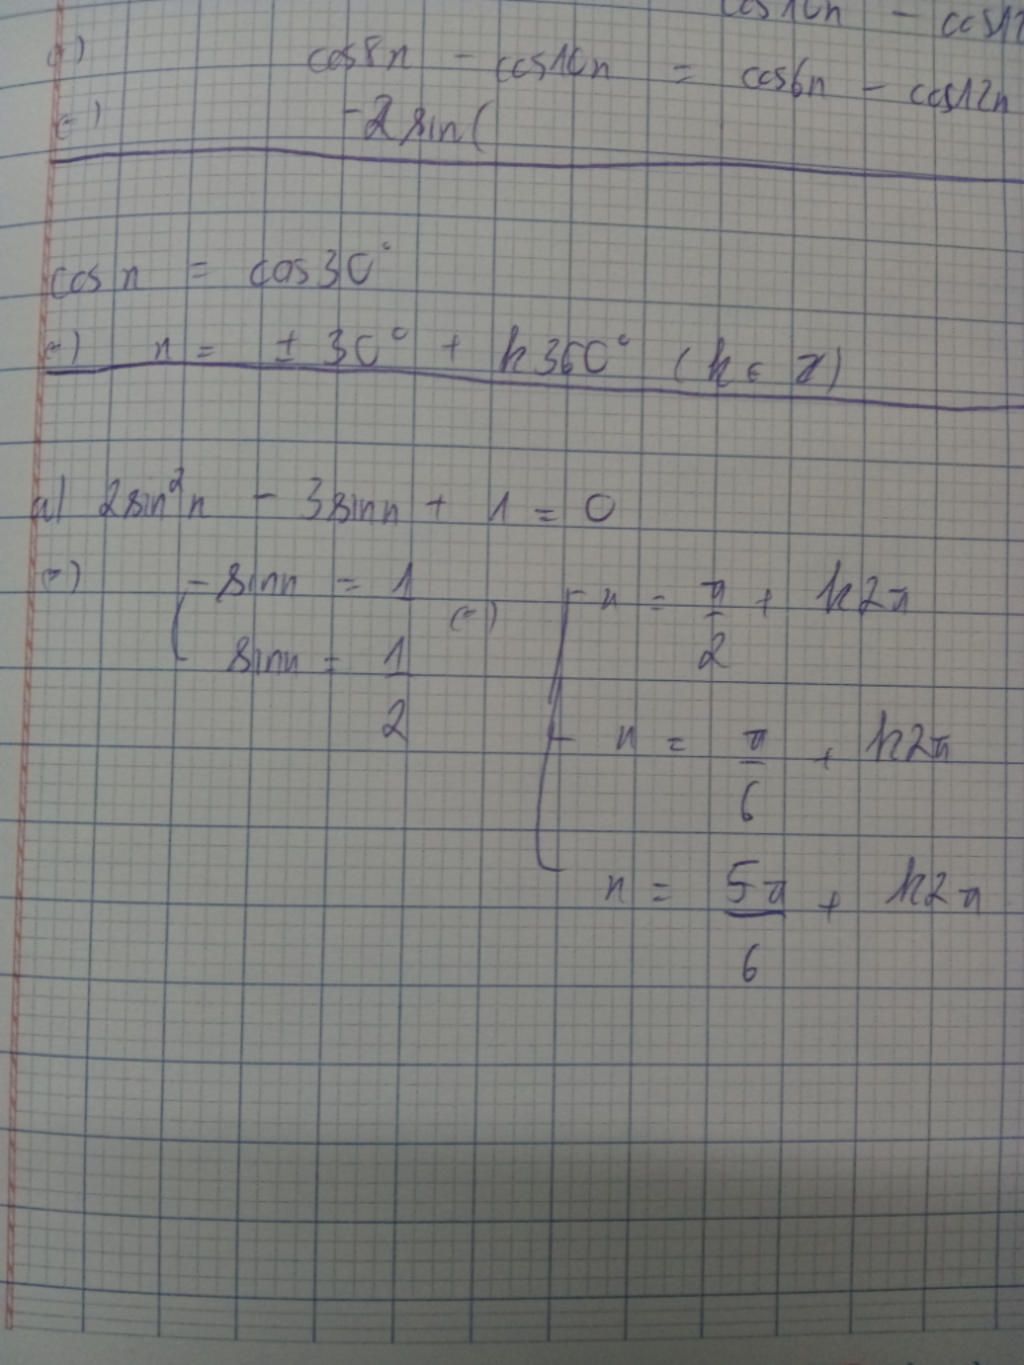 cos10x - cos12
⇔) cos8x - cos10x = cos6x - cos12x
⇔) -2 sin(
cos x = cos30°
⇔) x = ± 30° + k360° (k ∈ Z)
a) 2sin²x - 3sinx + 1 = 0
⇔) [ sinx = 1 ⇔) [ x = π/2 + k2π
sinx = 1/2
x = π/6 + k2π
x = 5π/6 + k2π